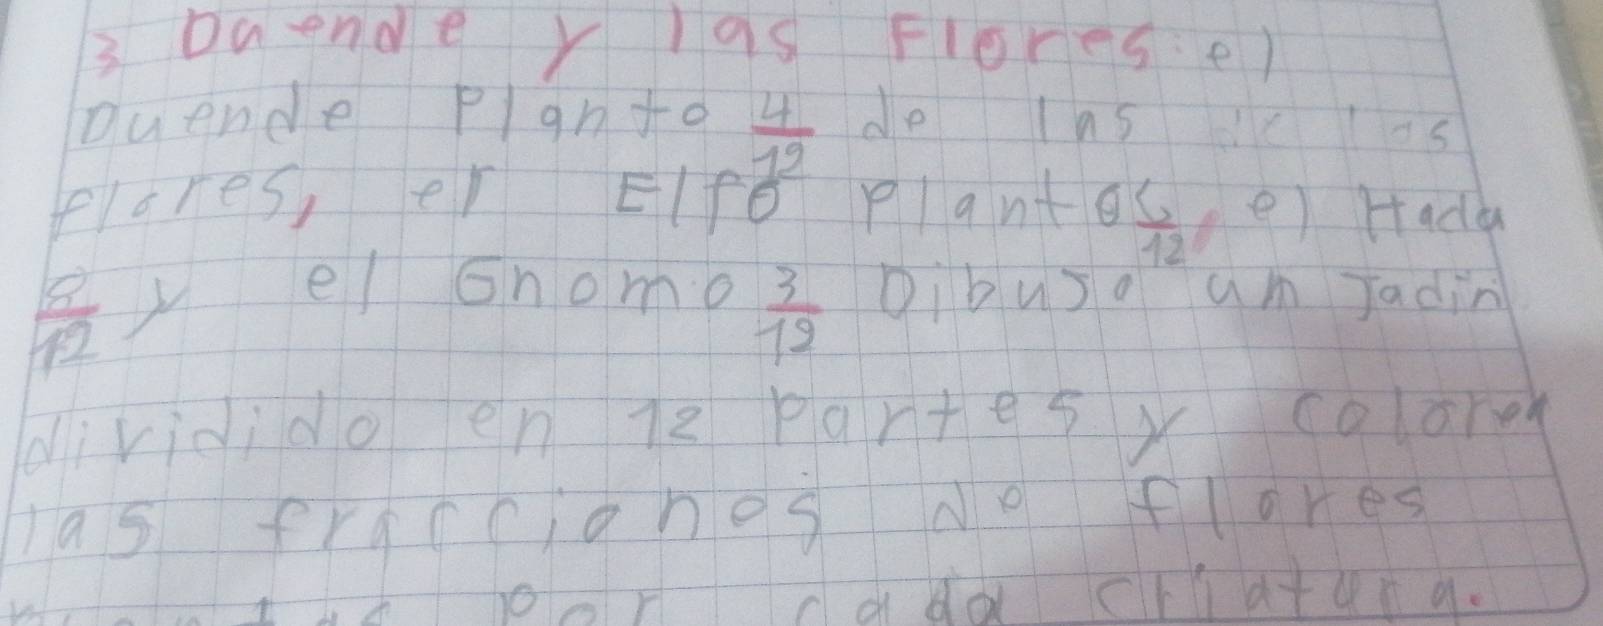 3 Duende y las Flores: el
Duende Planto 4/12 de las
flores, el Elfo planto 5/12, el Hada
8/12 y el Gnomo 3/12 Dibujo un Jadin
dividido en 12 partes y colorea
las fracciones de flores
por cada criatura.